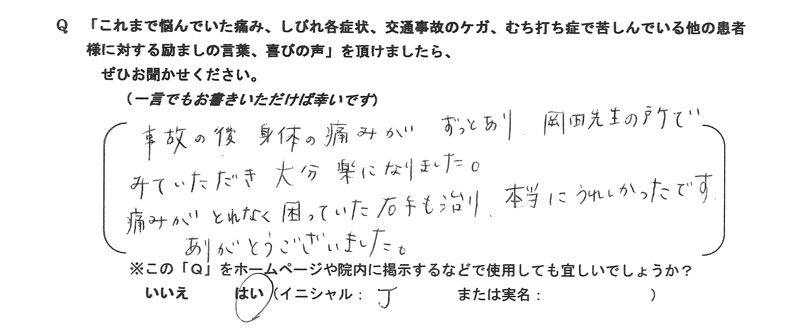 Q 「これまで悩んでいた痛み、しびれ各症状、交通事故のケガ、むち打ち症で苦しんでいる他の患者
様に対する励ましの言葉、喜びの声」を頂けましたら、
ぜひお聞かせください。
(一言でもお書きいただけば幸いです)
事故の後 身体の痛みが ずっとあり 岡田先生の所で
みていただき 大分 楽になりました。
痛みが とれなく 困っていた 右手も治り、本当に うれしかったです
ありがとうございました。
※この「Q」をホームページや院内に掲示するなどで使用しても宜しいでしょうか?
いいえ はい (イニシャル: J または実名: )